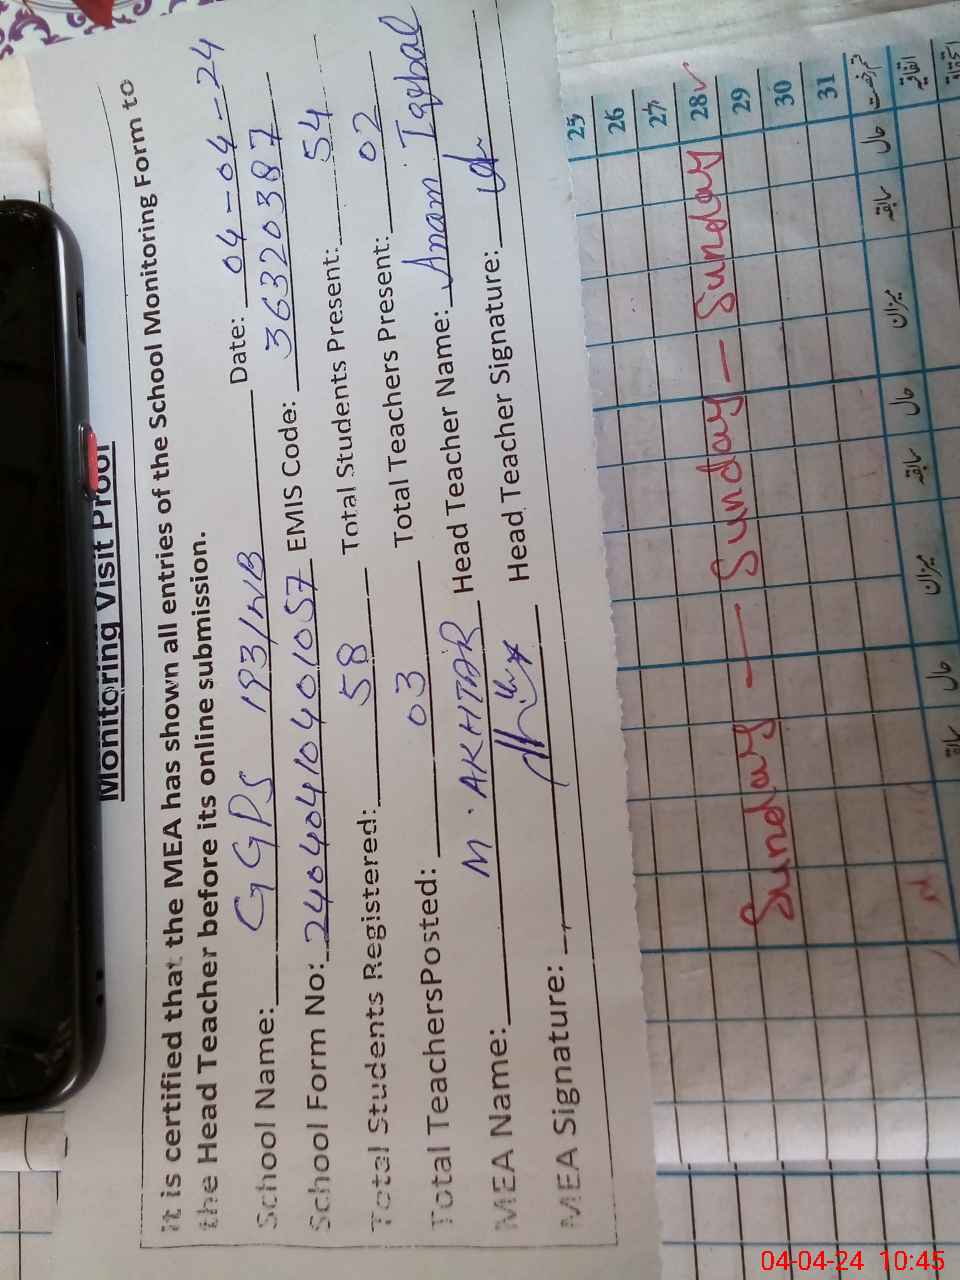 Monitoring Visit Proof
it is certified that the MEA has shown all entries of the School Monitoring Form to
the Head Teacher before its online submission.
School Name: GGPS 193/WB Date: 04-04-24
School Form No: 24040410401057 EMIS Code: 36320387
Total Students Registered: 58 Total Students Present: 54
Total TeachersPosted: 03 Total Teachers Present: 02
MEA Name: M. AKHTAR Head Teacher Name: Anam Iqbal
MEA Signature: Head Teacher Signature:
25
26
27
28
29
30
31
Sunday — Sunday — Sunday
حال سابقہ میزان حال سابقہ میزان حال
اتفاقیہ
04-04-24 10:45